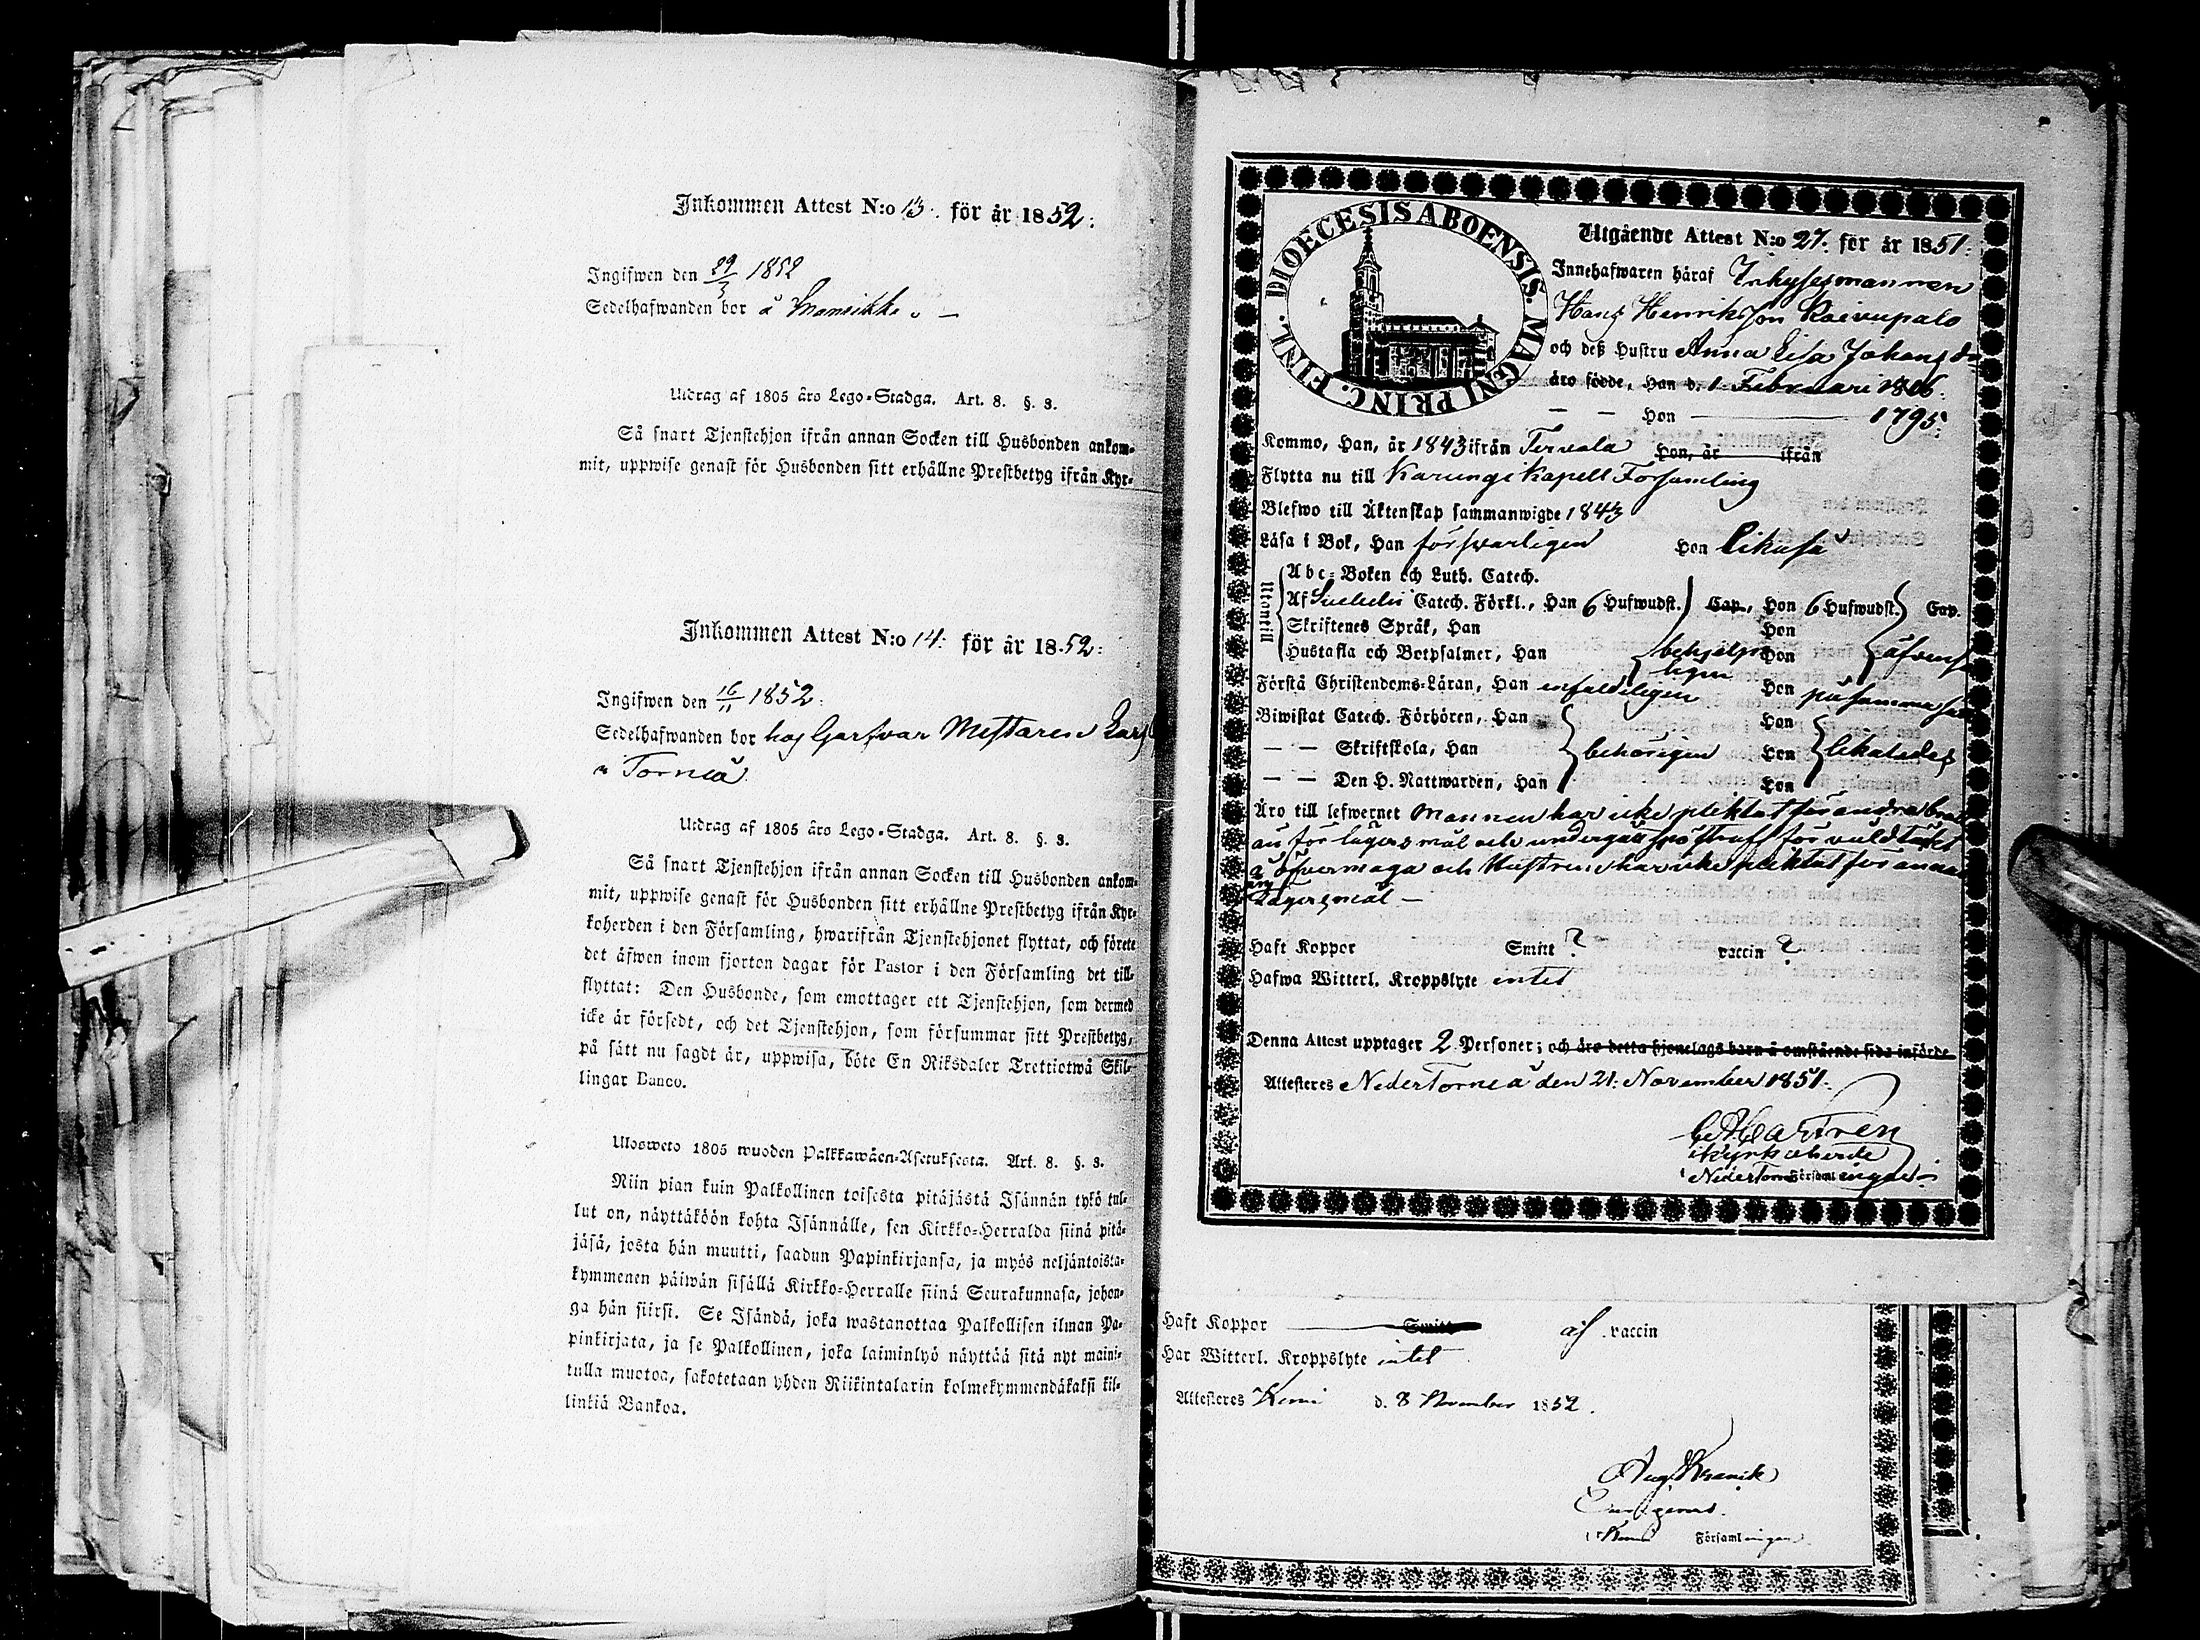 Inkommen Attest N:o 13. för år 1852:
Ingifwen den 29/3 1852
Sedelhafwanden bor å
Utdrag af 1805 års Lego-Stadga. Art. 8. §. 3.
Så snart Tjenstehjon ifrån annan Socken till Husbonden ankom-
mit, uppwise genast för Husbonden sitt erhållne Prestbetyg ifrån Kyr-
Inkommen Attest N:o 14. för år 1852:
Ingifwen den 16/11 1852:
Sedelhafwanden bor hos Garfvar Mestaren
Torneå
Utdrag af 1805 års Lego-Stadga. Art. 8. §. 3.
Så snart Tjenstehjon ifrån annan Socken till Husbonden ankom-
mit, uppwise genast för Husbonden sitt erhållne Prestbetyg ifrån Kyr-
koherden i den Församling, hwarifrån Tjenstehjonet flyttat, och förete
det äfwen inom fjorton dagar för Pastor i den Församling det till-
flyttat: Den Husbonde, som emottager ett Tjenstehjon, som dermed
icke är försedt, och det Tjenstehjon, som försummar sitt Prestbetyg,
på sätt nu sagdt är, uppwisa, böte En Riksdaler Trettiotwå Skil-
lingar Banco.
Ulosweto 1805 wuoden Palkkawäen-Asetuksesta. Art. 8. §. 3.
Niin pian kuin Palkollinen toisesta pitäjästä Isännän tykö tul-
lut on, näyttäköön kohta Isännälle, sen Kirkko-Herralda siinä pitä-
jäsä, josta hän muutti, saadun Papinkirjansa, ja myös neljäntoista-
kymmenen päiwän sisällä Kirkko-Herralle siinä Seurakunnasa, johon-
ga hän siirsi. Se Isändä, joka wastanottaa Palkollisen ilman Pa-
pinkirjata, ja se Palkollinen, joka laiminlyö näyttää sitä nyt maini-
tulla muotoa, sakotetaan yhden Riikintalarin kolmekymmendäkaksi kil-
linkiä Bankoa.
DIOECESIS ABOENSIS. MAGNI PRINC. FINL.
Utgående Attest N:o 27. för år 1851:
Innehafwaren häraf Inhysesmannen
Hans Henriksson Raivupalo
och deß Hustru Anna Lisa Johansd:
äro födde, Han d. 1 Februari 1806:
— — Hon — 1795:
Kommo, Han, år 1843 ifrån Tervola Hon, år ifrån
Flytta nu till Karungi Kapell Forsamling
Blefwo till Äktenskap sammanwigde 1843
Läsa i Bok, Han försvarligen Hon likaså
Utontill
Abc-Boken och Luth. Catech.
Af Svebelii Catech. Förkl., Han 6 Hufwudst. Cap., Hon 6 Hufwudst. Cap.
Skriftenes Språk, Han Hon
Hustafla och Botpsalmer, Han behjelpligen Hon äfvenså
Förstå Christendoms-Läran, Han enfaldeligen Hon på samma sätt
Biwistat Catech. Förhören, Han Hon
— — Skriftskola, Han behörigen Hon likaledes
— — Den H. Nattwarden, Han Hon
Äro till lefwernet Mannen har icke pliktat för andra brott
än för lägersmål och undergått spöstraff för våldtäkt
å öfvermaga och Hustrun har icke pliktat för annat
än Lägersmål —
Haft Koppor Smitt ? vaccin ?
Hafwa Witterl. Kroppslyte intet
Denna Attest upptager 2 Personer; och äro detta hjonelags barn å omstående sida införde
Attesteres NederTorneå den 21: November 1851:
C. Castren
Kyrkoherde
i NederTorneå Församlingar
Haft Koppor — Smitt af vaccin
Har Witterl. Kroppslyte intet
Attesteres Kemi d. 8 November 1852.
i Kemi Församlingen